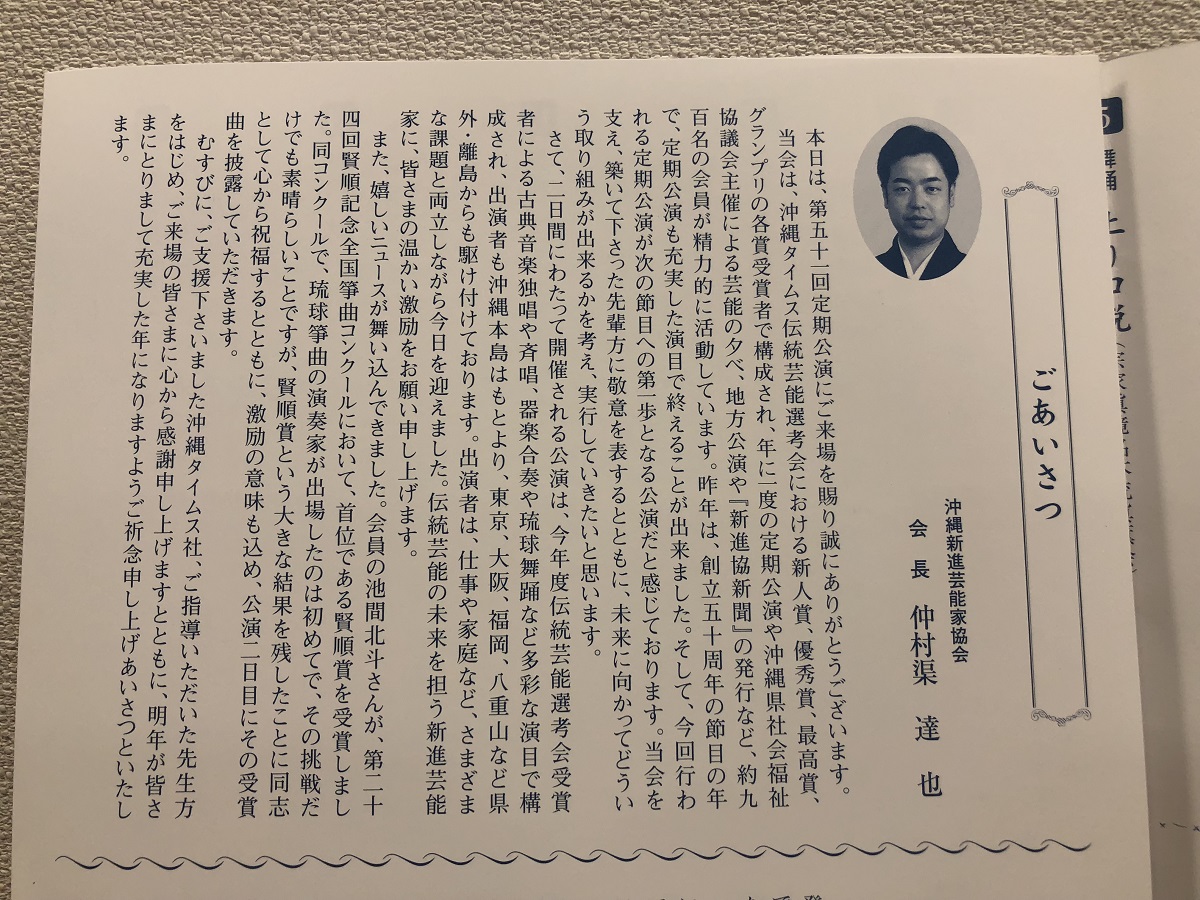 ごあいさつ
沖縄新進芸能家協会
会長 仲村渠 達也
本日は、第五十一回定期公演にご来場を賜り誠にありがとうございます。
当会は、沖縄タイムス伝統芸能選考会における新人賞、優秀賞、最高賞、
グランプリの各賞受賞者で構成され、年に一度の定期公演や沖縄県社会福祉
協議会主催による芸能の夕べ、地方公演や『新進協新聞』の発行など、約九
百名の会員が精力的に活動しています。昨年は、創立五十周年の節目の年
で、定期公演も充実した演目で終えることが出来ました。そして、今回行わ
れる定期公演が次の節目への第一歩となる公演だと感じております。当会を
支え、築いて下さった先輩方に敬意を表するとともに、未来に向かってどうい
う取り組みが出来るかを考え、実行していきたいと思います。
さて、二日間にわたって開催される公演は、今年度伝統芸能選考会受賞
者による古典音楽独唱や斉唱、器楽合奏や琉球舞踊など多彩な演目で構
成され、出演者も沖縄本島はもとより、東京、大阪、福岡、八重山など県
外・離島からも駆け付けております。出演者は、仕事や家庭など、さまざま
な課題と両立しながら今日を迎えました。伝統芸能の未来を担う新進芸能
家に、皆さまの温かい激励をお願い申し上げます。
また、嬉しいニュースが舞い込んできました。会員の池間北斗さんが、第二十
四回賢順記念全国箏曲コンクールにおいて、首位である賢順賞を受賞しまし
た。同コンクールで、琉球箏曲の演奏家が出場したのは初めてで、その挑戦だ
けでも素晴らしいことですが、賢順賞という大きな結果を残したことに同志
として心から祝福するとともに、激励の意味も込め、公演二日目にその受賞
曲を披露していただきます。
むすびに、ご支援下さいました沖縄タイムス社、ご指導いただいた先生方
をはじめ、ご来場の皆さまに心から感謝申し上げますとともに、明年が皆さ
まにとりまして充実した年になりますようご祈念申し上げあいさつといたし
ます。
5 舞踊 上り口説